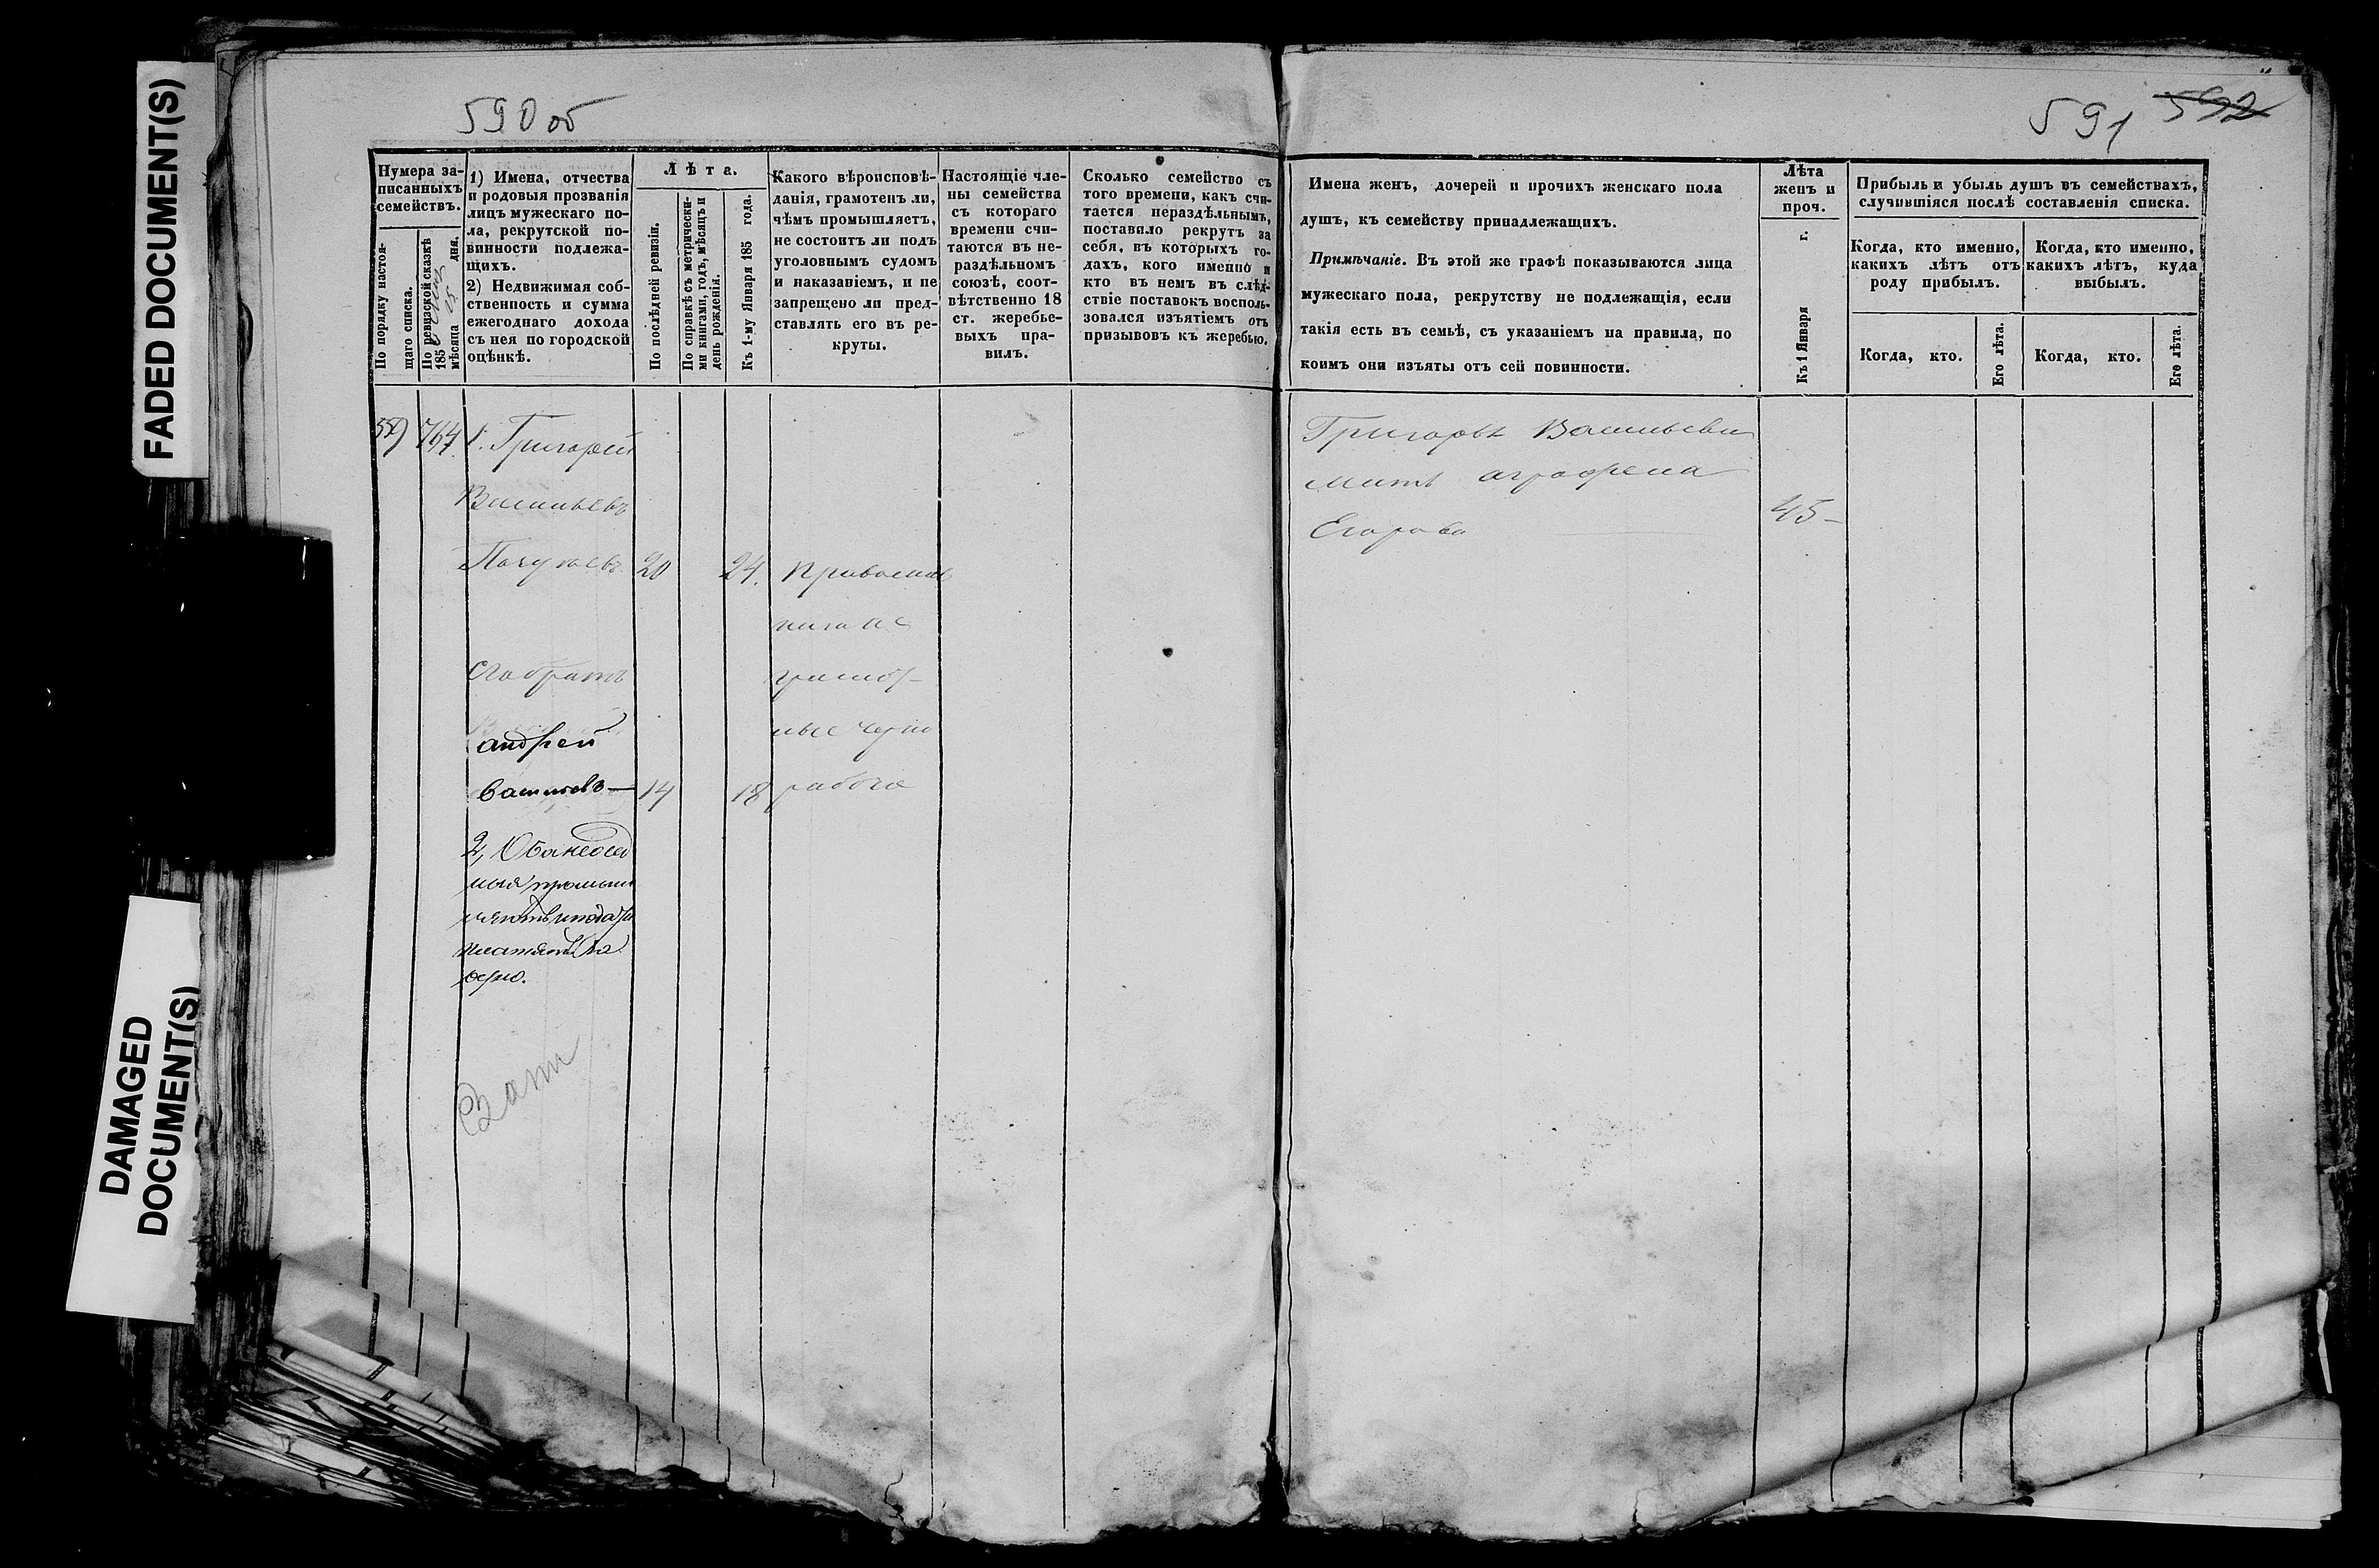 FADED DOCUMENT(S)
DAMAGED
DOCUMENT(S)
590 об
Нумера за-
писанныхъ
семействъ.
По порядку настоя-
щаго списка.
По ревизской сказкѣ
185
мѣсяца 25 дня.
1) Имена, отчества
и родовыя прозванія
лицъ мужескаго по-
ла, рекрутской по-
винности подлежа-
щихъ.
2) Недвижимая соб-
ственность и сумма
ежегоднаго дохода
съ нея по городской
оцѣнкѣ.
Лѣта.
По послѣдней ревизіи.
По справкѣ съ метрически-
ми книгами, годъ, мѣсяцъ и
день рожденія.
Къ 1-му Января 185 года.
Какого вѣроисповѣ-
данія, грамотенъ ли,
чѣмъ промышляетъ,
не состоитъ ли подъ
уголовнымъ судомъ
и наказаніемъ, и не
запрещено ли пред-
ставлять его въ ре-
круты.
Настоящіе чле-
ны семейства
съ котораго
времени счи-
таются въ не-
раздѣльномъ
союзѣ, соот-
вѣтственно 18
ст. жеребье-
выхъ пра-
вилъ.
Сколько семейство съ
того времени, какъ счи-
тается нераздѣльнымъ,
поставило рекрутъ за
себя, въ которыхъ го-
дахъ, кого именно и
кто въ немъ въ слѣд-
ствіе поставокъ восполь-
зовался изъятіемъ отъ
призывовъ къ жеребью.
764. 1. Григорей
Васильевъ
20 24. Православ
Его братъ
андрей
Васильевъ — 14 18 работа
2, Оба неосед
платятъ
591 592
Имена женъ, дочерей и прочихъ женскаго пола
душъ, къ семейству принадлежащихъ.
Примѣчаніе. Въ этой же графѣ показываются лица
мужескаго пола, рекрутству не подлежащія, если
такія есть въ семьѣ, съ указаніемъ на правила, по
коимъ они изъяты отъ сей повинности.
Лѣта
женъ и
проч.
Къ 1 Января г.
Прибыль и убыль душъ въ семействахъ,
случившіяся послѣ составленія списка.
Когда, кто именно,
какихъ лѣтъ, отъ
роду прибылъ.
Когда, кто именно,
какихъ лѣтъ, куда
выбылъ.
Когда, кто.
Его лѣта.
Когда, кто.
Его лѣта.
Григорья Васильева
мать аграфена
Егорова 45 –